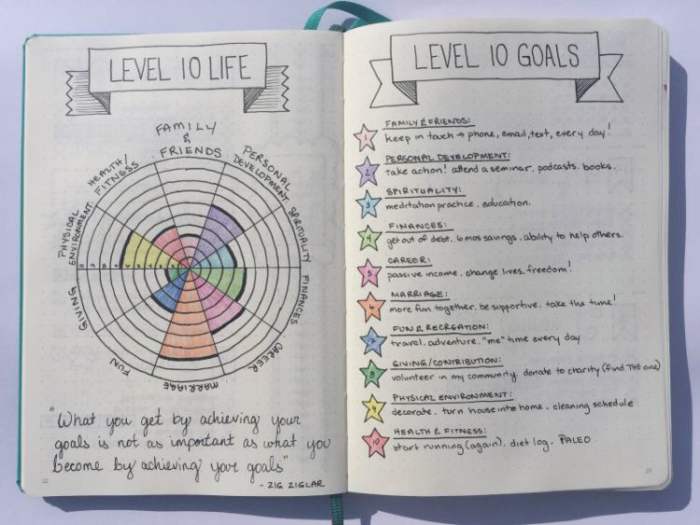 LEVEL 10 LIFE
FAMILY
&
FRIENDS
PERSONAL
DEVELOPMENT
SPIRITUALITY
FINANCES
CAREER
MARRIAGE
FUN
GIVING
PHYSICAL
ENVIRONMENT
HEALTH/
FITNESS
"What you get by achieving your
goals is not as important as what you
become by achieving your goals"
- ZIG ZIGLAR
LEVEL 10 GOALS
1
FAMILY & FRIENDS:
keep in touch → phone, email, text, every day!
2
PERSONAL DEVELOPMENT:
take action! attend a seminar. podcasts. books.
3
SPIRITUALITY:
meditation practice. education.
4
FINANCES:
get out of debt. 6 mos savings. ability to help others.
5
CAREER:
passive income. change lives. freedom!
6
MARRIAGE:
more fun together. be supportive. take the time!
7
FUN & RECREATION:
travel. adventure. "me" time every day
8
GIVING/CONTRIBUTION:
volunteer in my community. donate to charity (find THE one)
9
PHYSICAL ENVIRONMENT:
decorate. turn house into home. cleaning schedule
10
HEALTH & FITNESS:
start running (again). diet log. PALEO